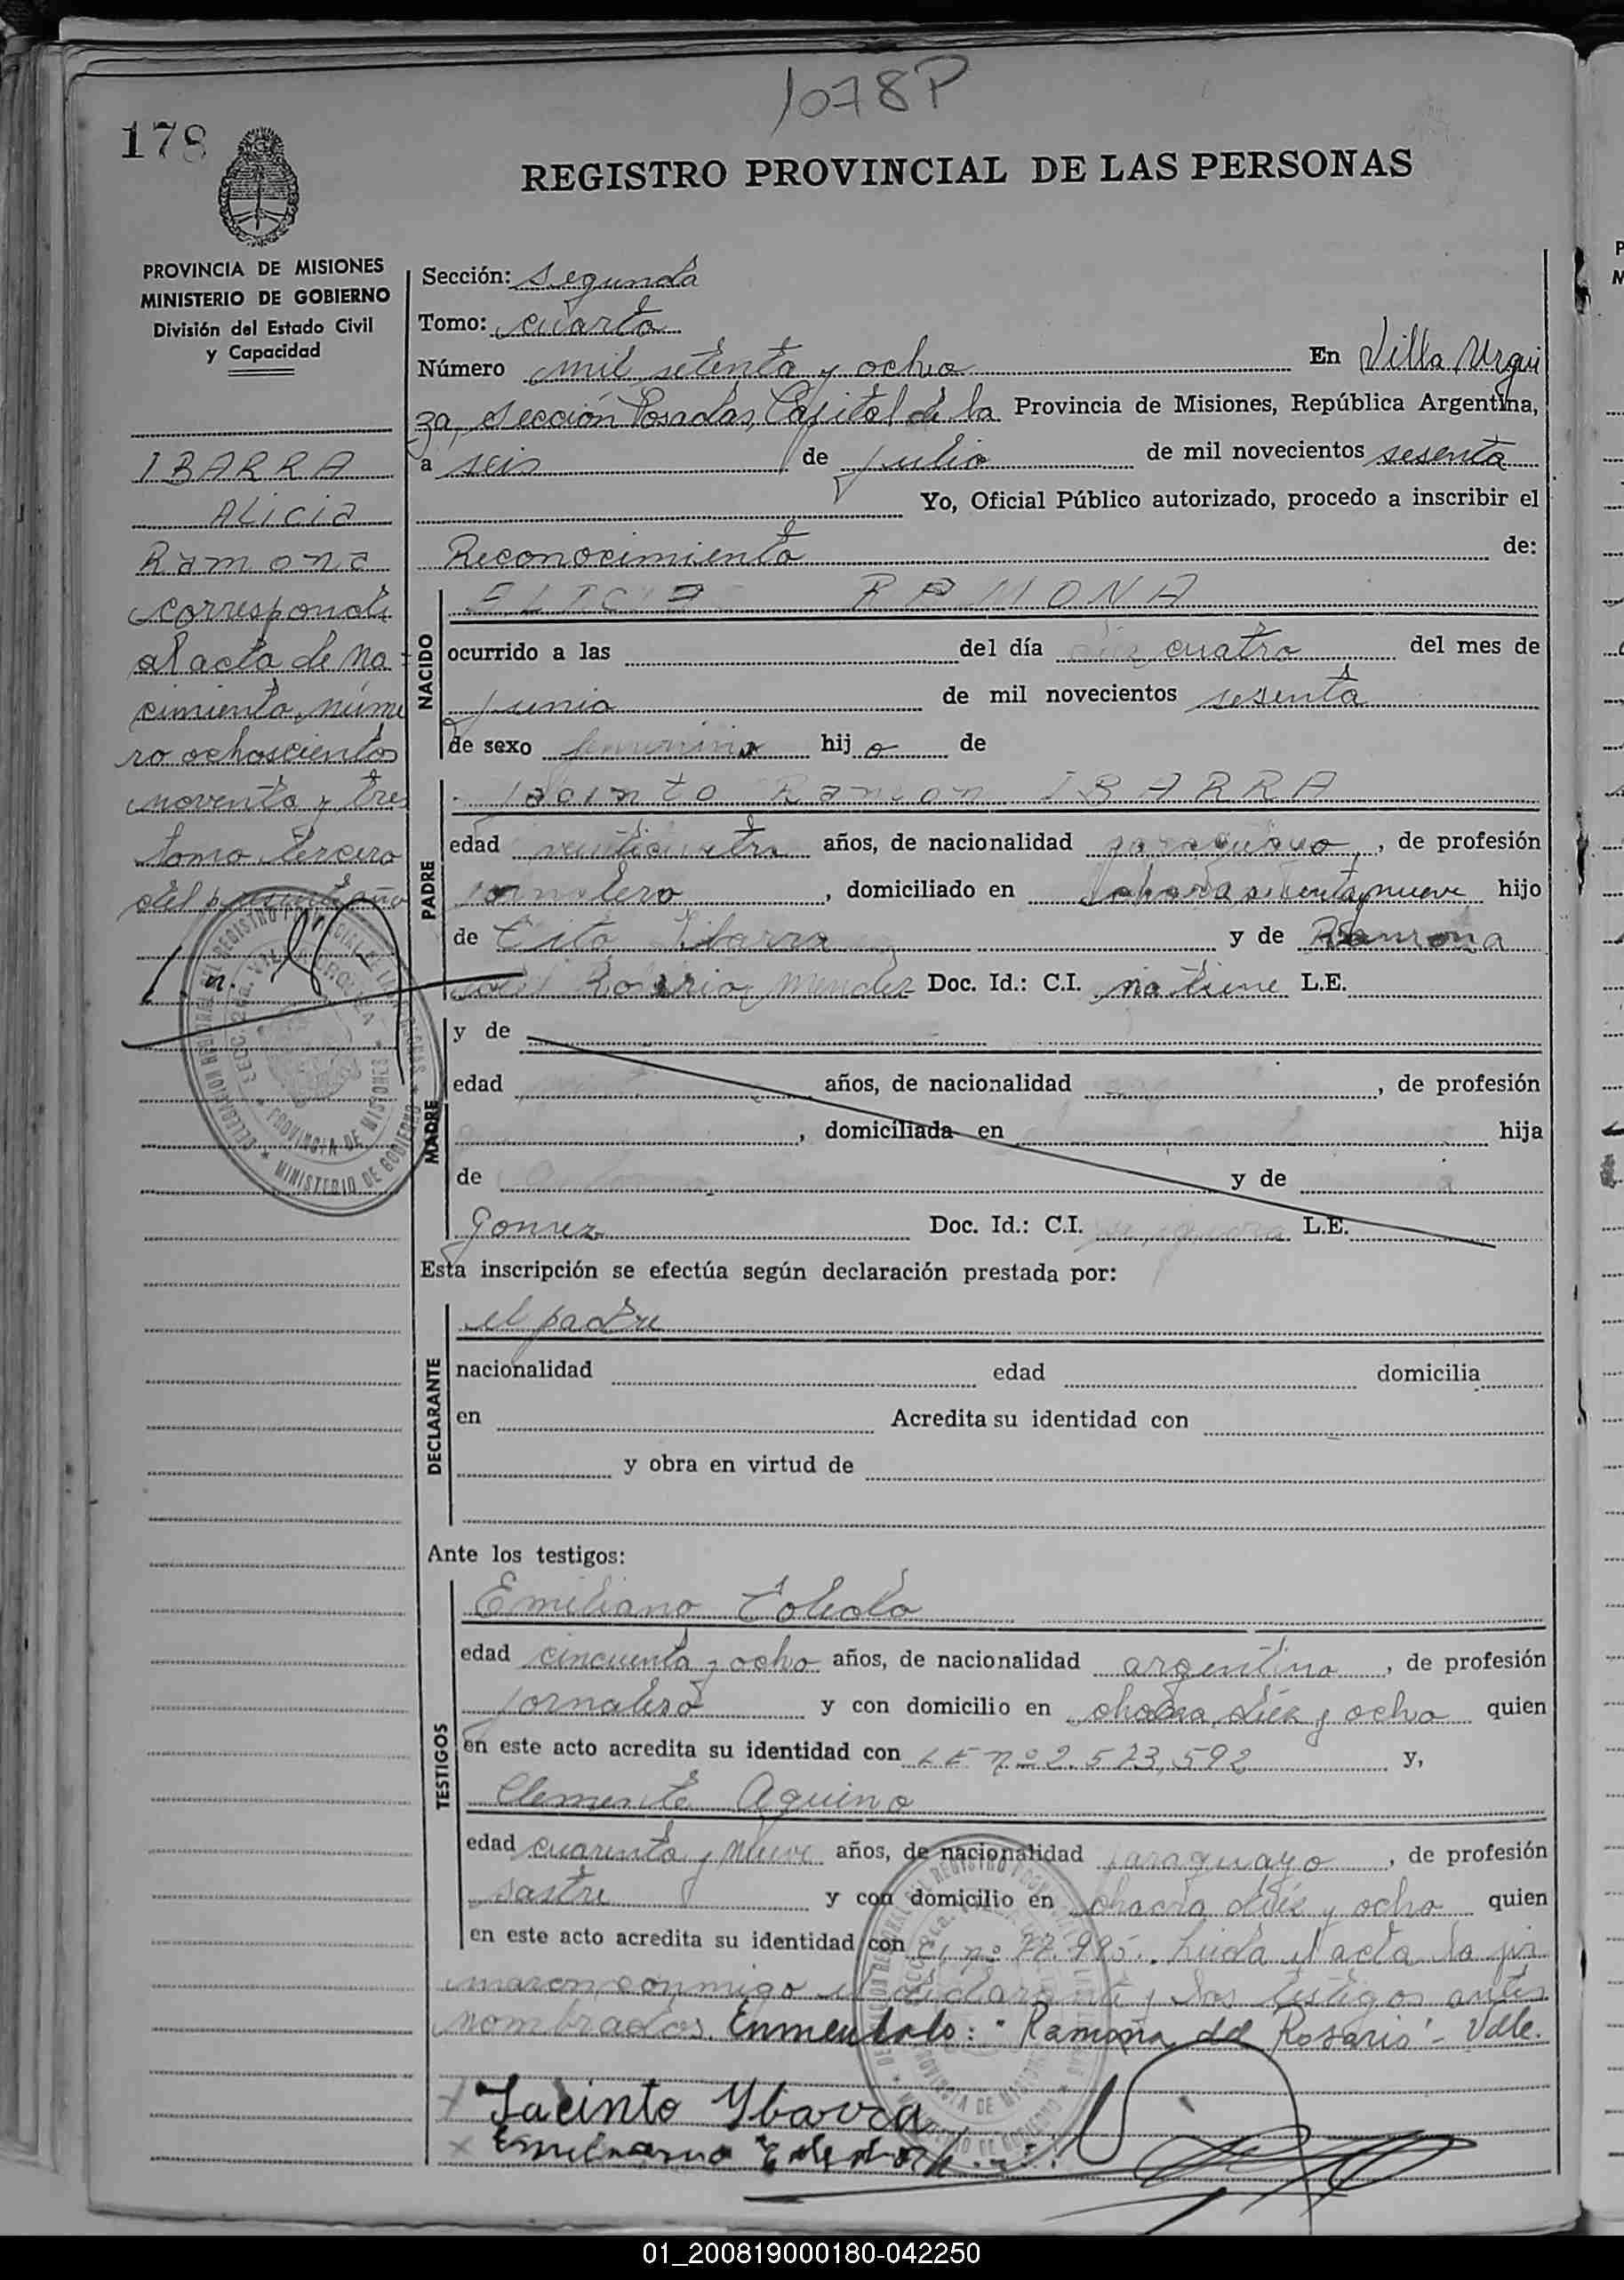 1078P
178
REGISTRO PROVINCIAL DE LAS PERSONAS
PROVINCIA DE MISIONES
MINISTERIO DE GOBIERNO
División del Estado Civil
y Capacidad
IBARRA
Alicia
Ramona
corresponde
al acta de na
cimiento núme
ro ochoscientos
noventa y tres
tomo tercero
del presente año
Sección: Segunda
Tomo: cuarto
Número mil setenta y ocho En Villa Urqui
za, sección Posadas, Capital de la Provincia de Misiones, República Argentina,
a seis de julio de mil novecientos sesenta
Yo, Oficial Público autorizado, procedo a inscribir el
Reconocimiento de:
NACIDO
RAMONA
ocurrido a las del día cuatro del mes de
junio de mil novecientos sesenta
de sexo femenino hijo de
PADRE
Jacinto Ramon IBARRA
edad veinticuatro años, de nacionalidad paraguayo, de profesión
jornalero, domiciliado en chacra setenta y nueve hijo
de Tito Ibarra y de Ramona
del Rosario Mendez Doc. Id.: C.I. no tiene L.E.
MADRE
y de
edad años, de nacionalidad , de profesión
, domiciliada en hija
de y de
Gomez Doc. Id.: C.I. L.E.
Esta inscripción se efectúa según declaración prestada por:
DECLARANTE
el padre
nacionalidad edad domicilia
en Acredita su identidad con
y obra en virtud de
Ante los testigos:
TESTIGOS
Emiliano Toledo
edad cincuenta y ocho años, de nacionalidad argentino, de profesión
jornalero y con domicilio en chacra diez y ocho quien
en este acto acredita su identidad con LE nº 2.573,592 y,
Clemente Aquino
edad cuarenta y nueve años, de nacionalidad paraguayo, de profesión
sastre y con domicilio en chacra diez y ocho quien
en este acto acredita su identidad con CI nº 77.995. Leida el acta la fir
maron conmigo el declarante y los testigos antes
nombrados. Enmendado: "Ramona del Rosario"- Vale.
x Jacinto Ybarra
x Emiliano
01_200819000180-042250